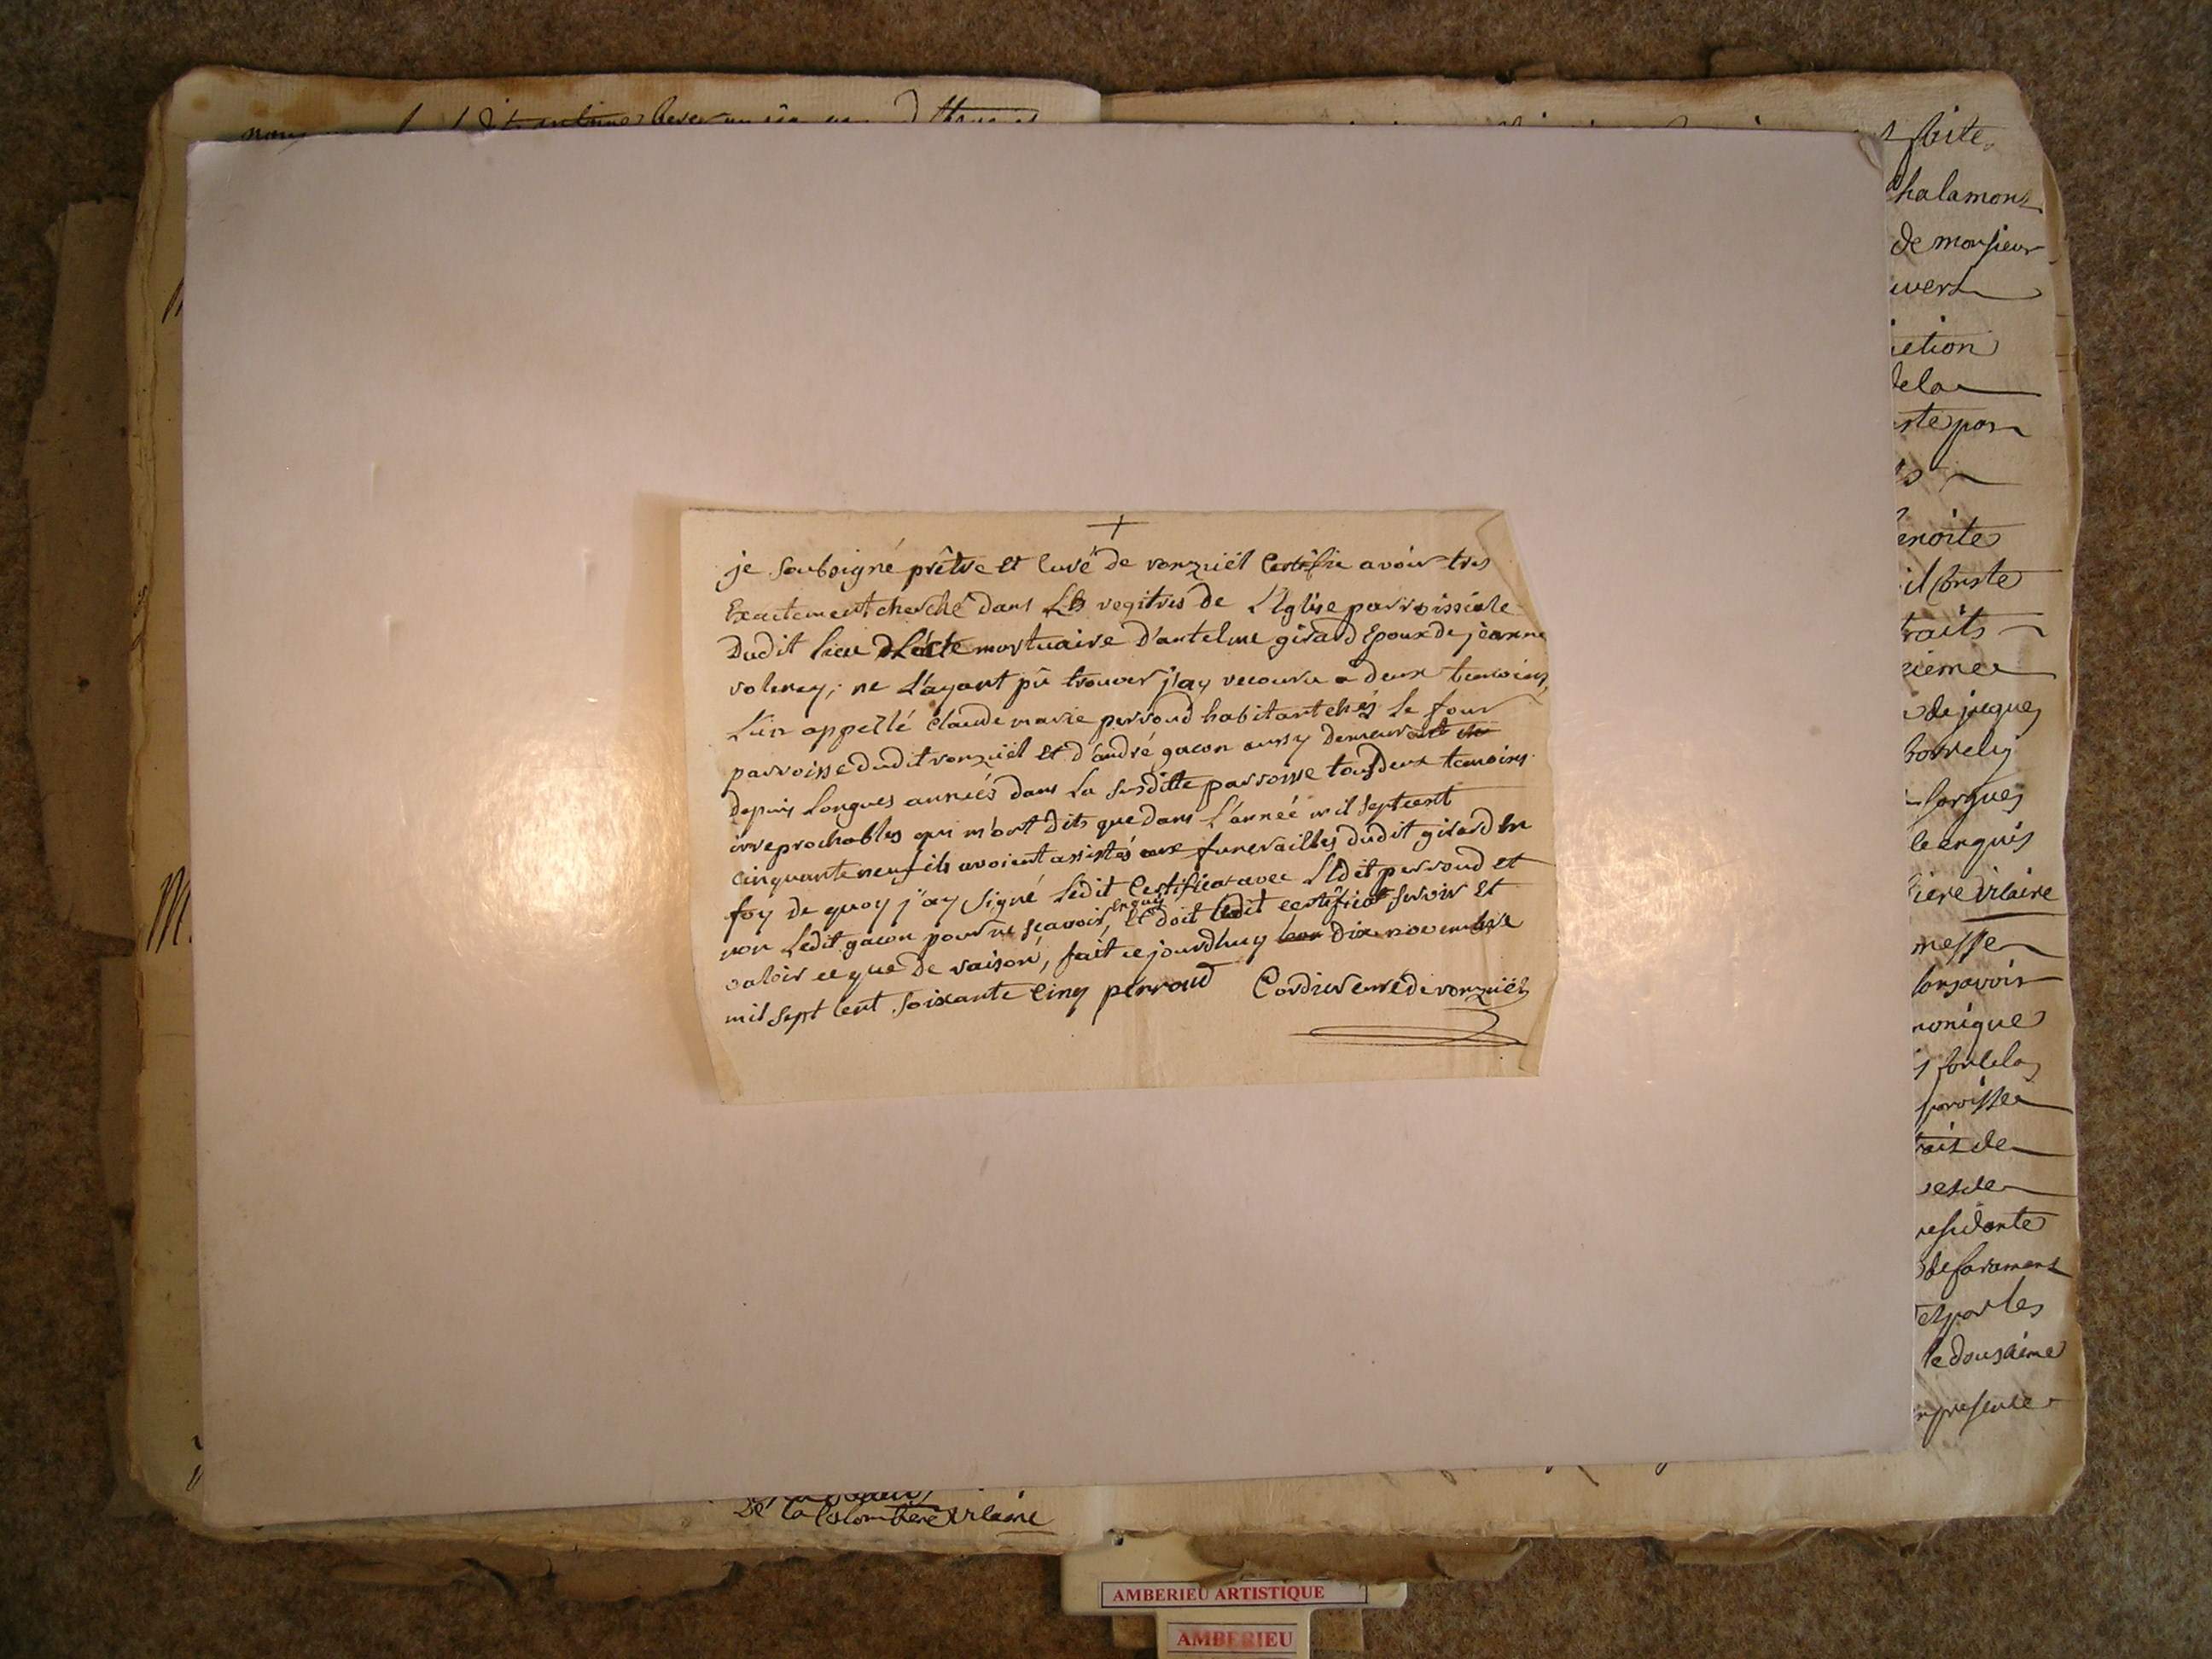 +
je soubsigné prêtre et curé de vonzuël certifie avoir tres
Exactement cherché dans Les regitres de L'Eglise parroissiale
Dudit lieu L'acte mortuaire d'antelme girard Epoux de jeanne
volerey; ne L'ayant pû trouver j'ay recouru a deux temoins,
L'un appellé claude marie perroud habitant chés le four
parroisse dudit vonzuël et d'andré gacon aussy demeurant
depuis Longues années dans La susditte parroisse tous deux temoins
irreprochables qui m'ont dits que dans L'année mil sept cent
cinquante neuf ils avoient assistés aux funerailles dudit girard En
foy de quoy j'ay signé Ledit Certificat avec Ledit perroud et
non Ledit gacon pour ne sçavoir, enquis Et doit ledit certificat servir et
valoir ce que de raison, fait ce jourdhuy dix novembre
mil sept cent soixante cinq perroud Cordier curé de vonzuël
halamont
de monsieur
uvert
ction
dela
ste par
enoite
il conste
raits
zieme
de jacques
borrely
forgues
le enquis
iere vicaire
messe
lon savoir
onique
paroisse
rait de
residante
de faramans
et par les
le dousieme
presence
De la Colombiere vicaire
AMBERIEU ARTISTIQUE
AMBERIEU